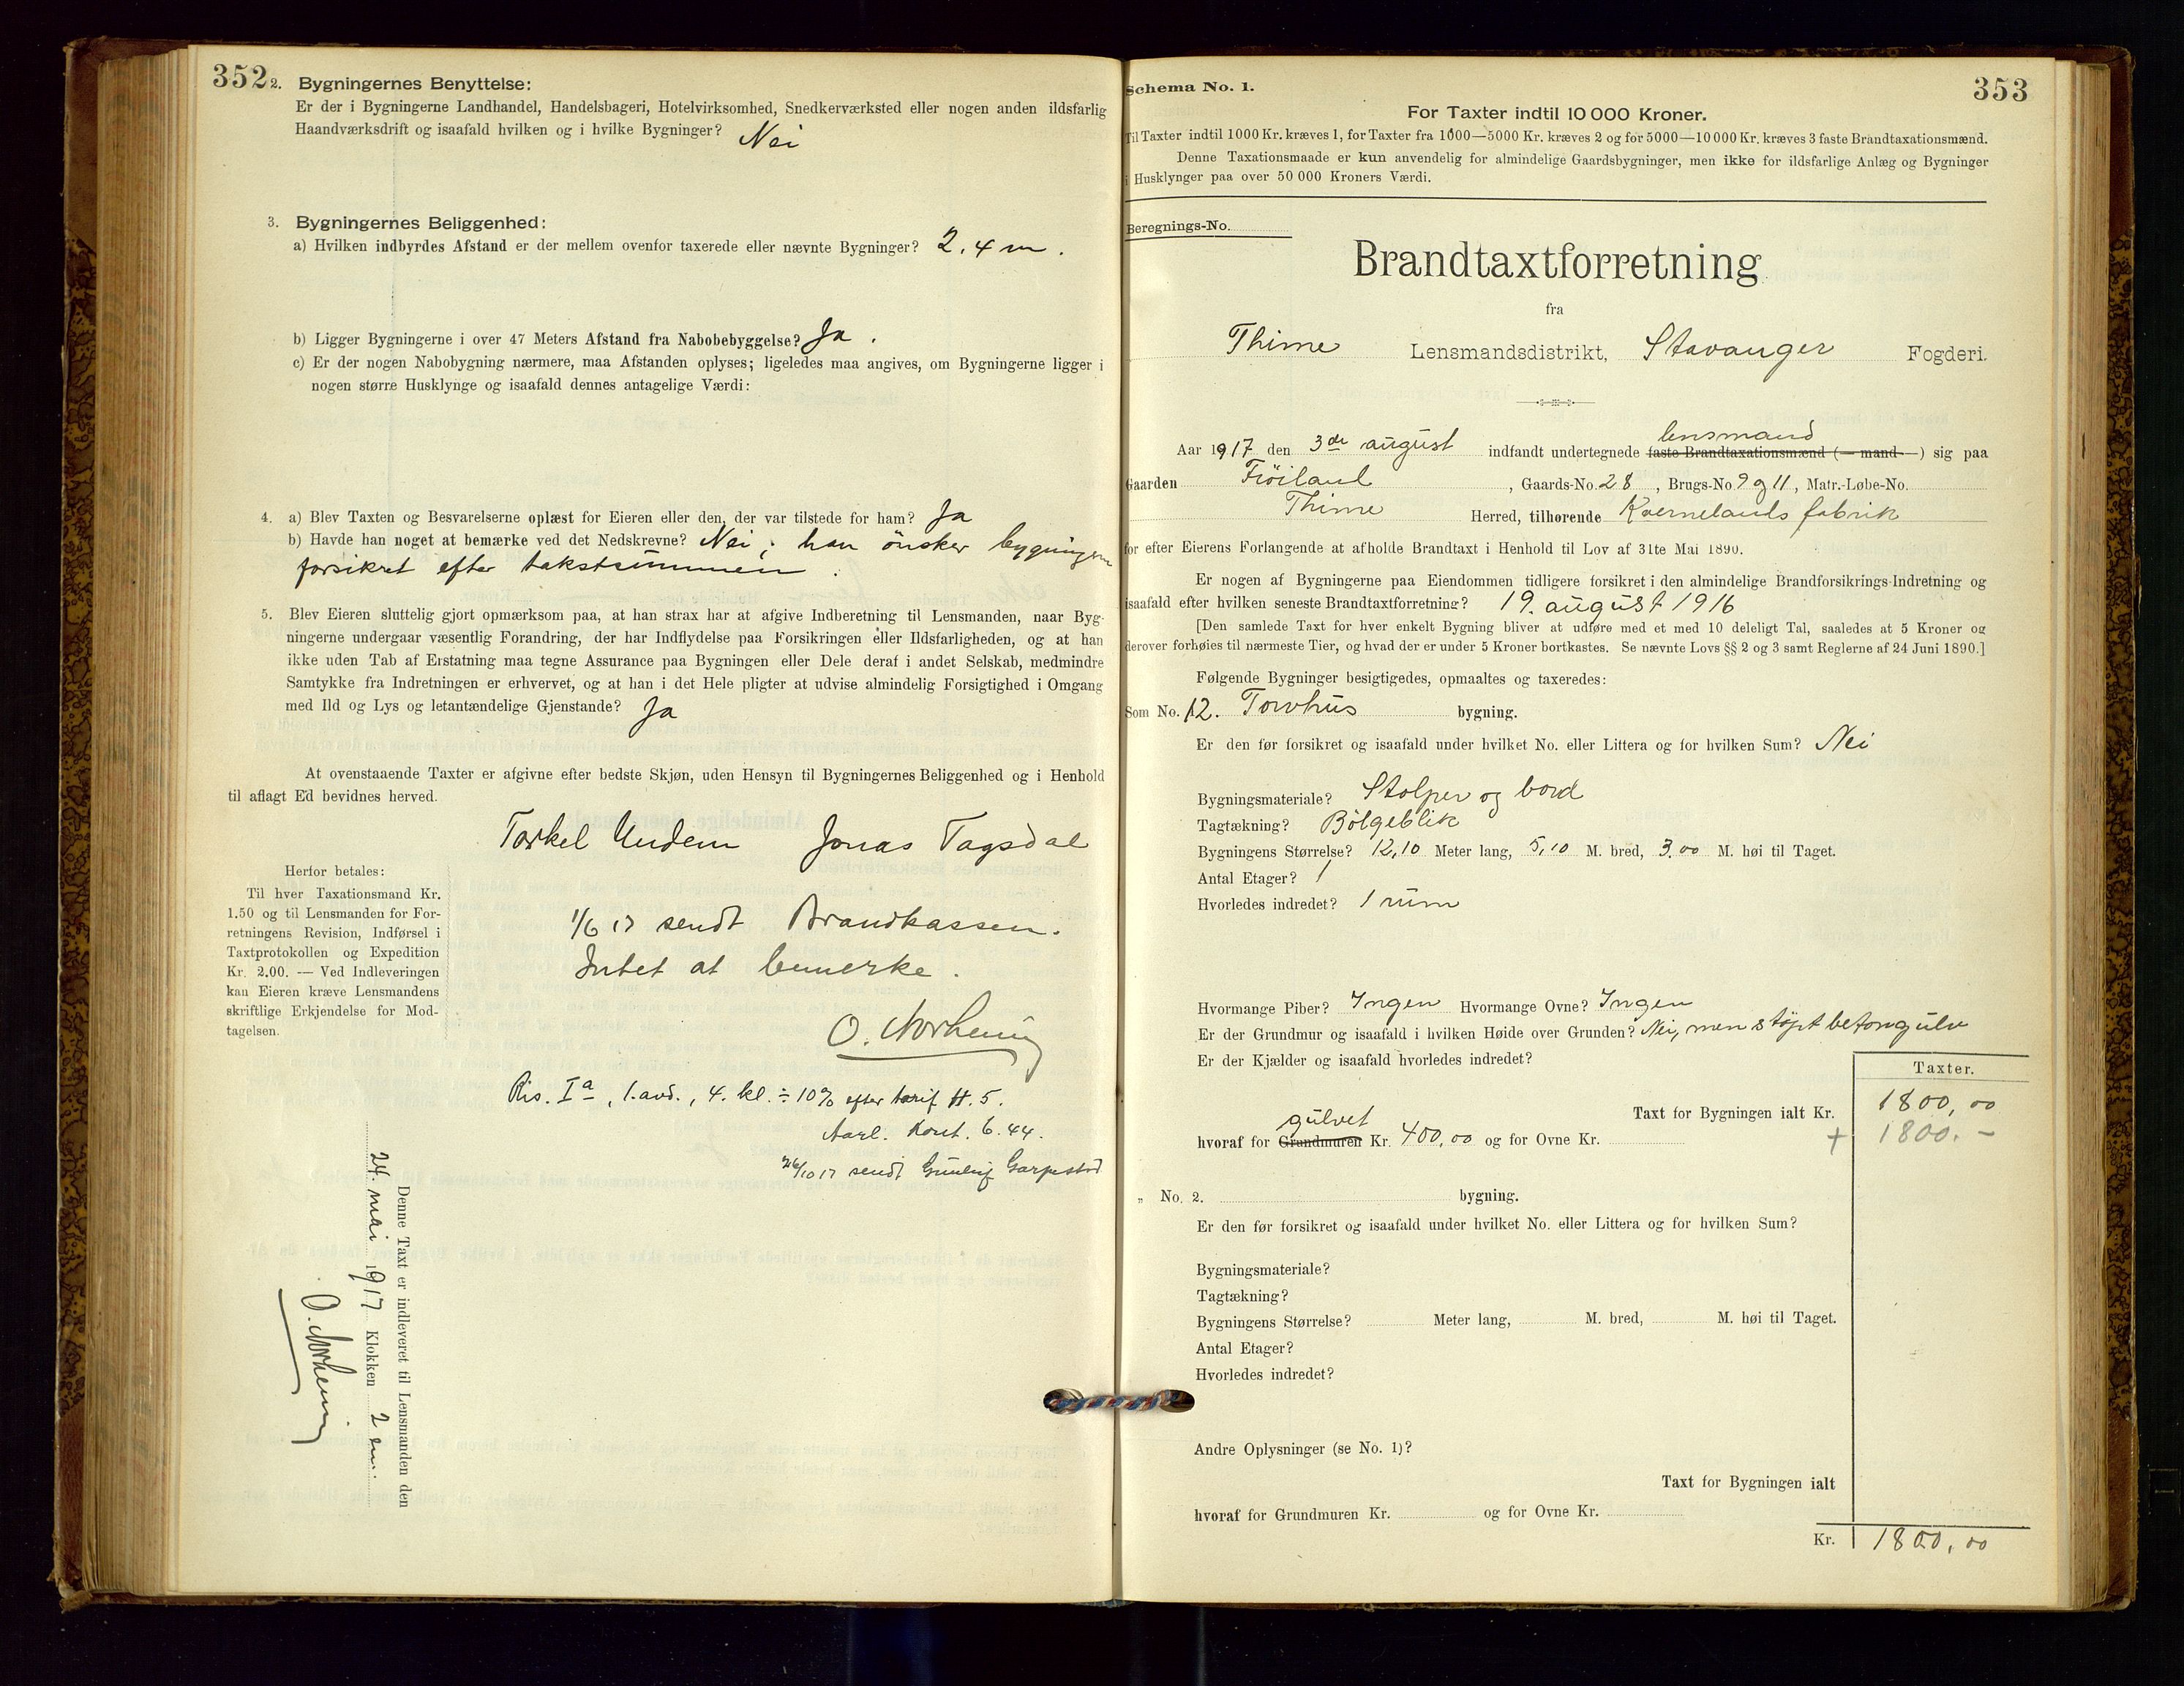 352
2. Bygningernes Benyttelse:
Er der i Bygningerne Landhandel, Handelsbageri, Hotelvirksomhed, Snedkerværksted eller nogen anden ildsfarlig
Haandværksdrift og isaafald hvilken og i hvilke Bygninger? Nei
3. Bygningernes Beliggenhed:
a) Hvilken indbyrdes Afstand er der mellem ovenfor taxerede eller nævnte Bygninger? 2,4 m.
b) Ligger Bygningerne i over 47 Meters Afstand fra Nabobebyggelse? Ja.
c) Er der nogen Nabobygning nærmere, maa Afstanden oplyses; ligeledes maa angives, om Bygningerne ligger i
nogen større Husklynge og isaafald dennes antagelige Værdi:
4. a) Blev Taxten og Besvarelserne oplæst for Eieren eller den, der var tilstede for ham? Ja
b) Havde han noget at bemærke ved det Nedskrevne? Nei; han ønsker bygningen
forsikret efter takstsummen.
5. Blev Eieren sluttelig gjort opmærksom paa, at han strax har at afgive Indberetning til Lensmanden, naar Byg-
ningerne undergaar væsentlig Forandring, der har Indflydelse paa Forsikringen eller Ildsfarligheden, og at han
ikke uden Tab af Erstatning maa tegne Assurance paa Bygningen eller Dele deraf i andet Selskab, medmindre
Samtykke fra Indretningen er erhvervet, og at han i det Hele pligter at udvise almindelig Forsigtighed i Omgang
med Ild og Lys og letantændelige Gjenstande? Ja
At ovenstaaende Taxter er afgivne efter bedste Skjøn, uden Hensyn til Bygningernes Beliggenhed og i Henhold
til aflagt Ed bevidnes herved.
Torkel Undem Jonas Tagsdal
Herfor betales:
Til hver Taxationsmand Kr.
1.50 og til Lensmanden for For-
retningens Revision, Indførsel i
Taxtprotokollen og Expedition
Kr. 2.00. — Ved Indleveringen
kan Eieren kræve Lensmandens
skriftlige Erkjendelse for Mod-
tagelsen.
1/6 17 sendt Brandkassen.
Intet at bemerke.
O. Norheim
Ris. Ia, 1. avd., 4. kl. ÷ 10% efter tarif H. 5.
Aarl. Kont. 6.44.
26/10 17 sendt Garpestad
Denne Taxt er indleveret til Lensmanden den
24. mai 1917 Klokken 2 em.
O. Norheim
353
Schema No. 1.
For Taxter indtil 10 000 Kroner.
Til Taxter indtil 1000 Kr. kræves 1, for Taxter fra 1000—5000 Kr. kræves 2 og for 5000—10 000 Kr. kræves 3 faste Brandtaxationsmænd.
Denne Taxationsmaade er kun anvendelig for almindelige Gaardsbygninger, men ikke for ildsfarlige Anlæg og Bygninger
i Husklynger paa over 50 000 Kroners Værdi.
Beregnings-No.
Brandtaxtforretning
fra
Thime Lensmandsdistrikt, Stavanger Fogderi.
lensmand
Aar 1917 den 3de august indfandt undertegnede faste Brandtaxationsmænd (— mand —) sig paa
Gaarden Frøiland, Gaards-No. 28, Brugs-No. 9 og 11, Matr.-Løbe-No.
Thime Herred, tilhørende Kvernelands fabrik
for efter Eierens Forlangende at afholde Brandtaxt i Henhold til Lov af 31te Mai 1890.
Er nogen af Bygningerne paa Eiendommen tidligere forsikret i den almindelige Brandforsikrings-Indretning og
isaafald efter hvilken seneste Brandtaxtforretning? 19. august 1916
[Den samlede Taxt for hver enkelt Bygning bliver at udføre med et med 10 deleligt Tal, saaledes at 5 Kroner og
derover forhøies til nærmeste Tier, og hvad der er under 5 Kroner bortkastes. Se nævnte Lovs §§ 2 og 3 samt Reglerne af 24 Juni 1890.]
Følgende Bygninger besigtigedes, opmaaltes og taxeredes:
Som No. 12. Torvhus bygning.
Er den før forsikret og isaafald under hvilket No. eller Littera og for hvilken Sum? Nei
Bygningsmateriale? Stolper og bord
Tagtækning? Bølgeblik
Bygningens Størrelse? 12,10 Meter lang, 5,10 M. bred, 3.00 M. høi til Taget.
Antal Etager? 1
Hvorledes indredet? 1 rum
Hvormange Piber? Ingen Hvormange Ovne? Ingen
Er der Grundmur og isaafald i hvilken Høide over Grunden? Nei, men støpt betongulv
Er der Kjælder og isaafald hvorledes indredet?
Taxter.
Taxt for Bygningen ialt Kr. 1800,00
gulvet
hvoraf for Grundmuren Kr. 400,00 og for Ovne Kr. + 1800.-
„ No. 2. bygning.
Er den før forsikret og isaafald under hvilket No. eller Littera og for hvilken Sum?
Bygningsmateriale?
Tagtækning?
Bygningens Størrelse? Meter lang, M. bred, M. høi til Taget.
Antal Etager?
Hvorledes indredet?
Andre Oplysninger (se No. 1)?
Taxt for Bygningen ialt
hvoraf for Grundmuren Kr. og for Ovne Kr.
Kr. 1800,00